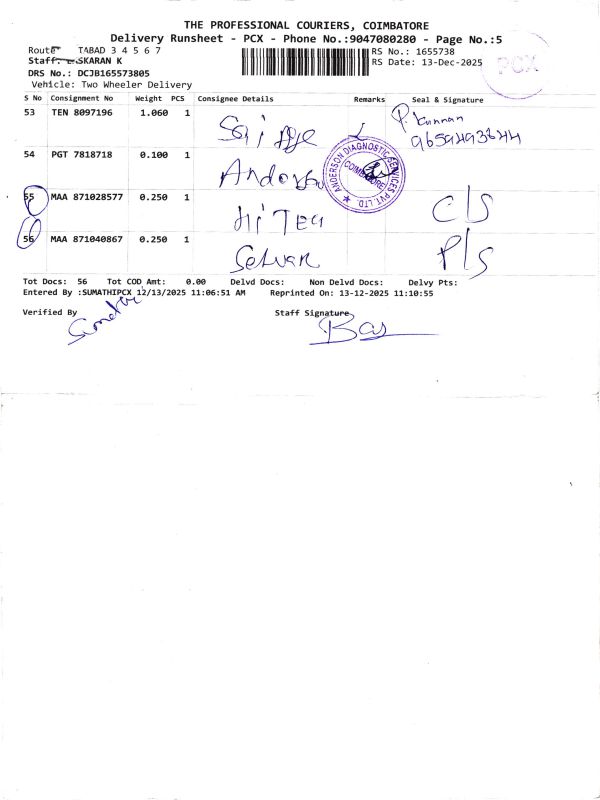 THE PROFESSIONAL COURIERS, COIMBATORE
Delivery Runsheet - PCX - Phone No.:9047080280 - Page No.:5
Route TABAD 3 4 5 6 7
RS No.: 1655738
Staff: SKARAN K
RS Date: 13-Dec-2025
PCX
DRS No.: DCJB165573805
Vehicle: Two Wheeler Delivery
S No Consignment No Weight PCS Consignee Details Remarks Seal & Signature
53 TEN 8097196 1.060 1 Sai P. Kannan
9659493644
54 PGT 7818718 0.100 1 Anderson
ANDERSON DIAGNOSTIC SERVICES PVT. LTD. ★ COIMBATORE
55 MAA 871028577 0.250 1 Hi Tech C/S
56 MAA 871040867 0.250 1 Selvan P/S
Tot Docs: 56 Tot COD Amt: 0.00 Delvd Docs: Non Delvd Docs: Delvy Pts:
Entered By :SUMATHIPCX 12/13/2025 11:06:51 AM Reprinted On: 13-12-2025 11:10:55
Verified By Staff Signature
Bas